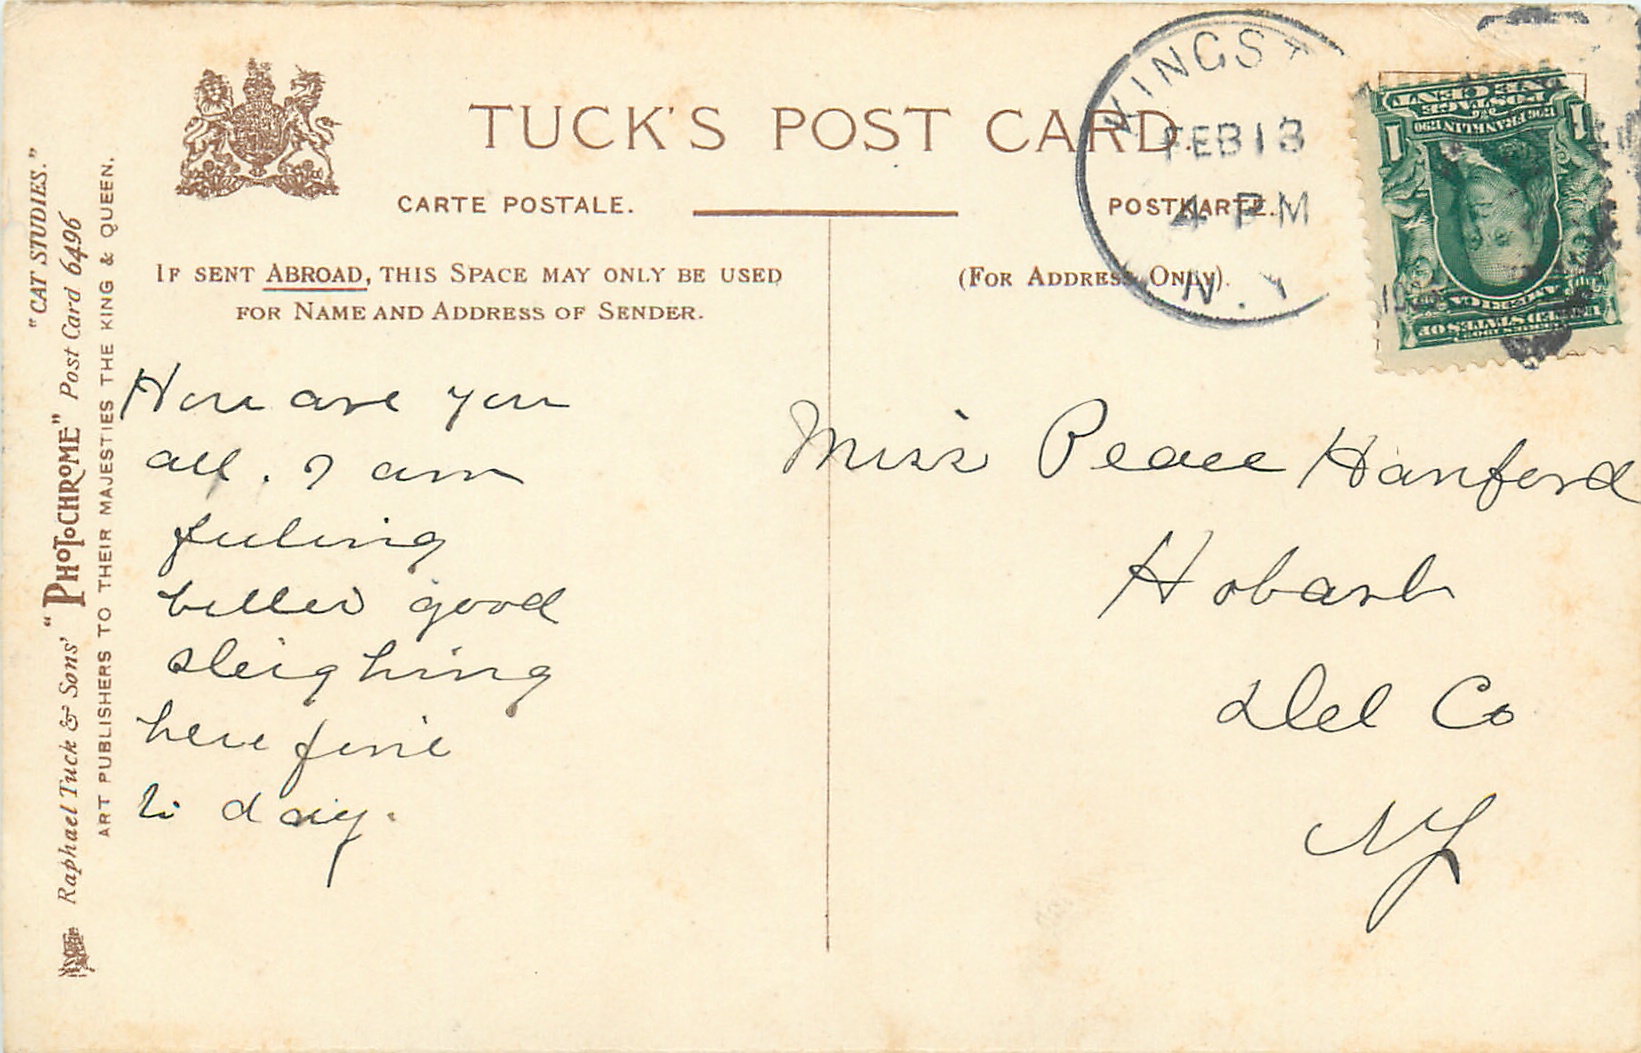 TUCK'S POST CARD.
CARTE POSTALE.
POSTKARTE.
IF SENT ABROAD, THIS SPACE MAY ONLY BE USED
FOR NAME AND ADDRESS OF SENDER.
(FOR ADDRESS ONLY).
KINGST
FEB 13
4 PM
N.Y.
POSTAGE
ONE CENT
1706 FRANKLIN 1790
1
1
UNITED STATES OF
AMERICA
"CAT STUDIES."
Raphael Tuck & Sons' "PHOTOCHROME" Post Card 6496
ART PUBLISHERS TO THEIR MAJESTIES THE KING & QUEEN.
How are you
all. I am
feeling
better good
sleighing
here fine
to day.
Miss Peace Hanford
Hobart
Del Co
NY